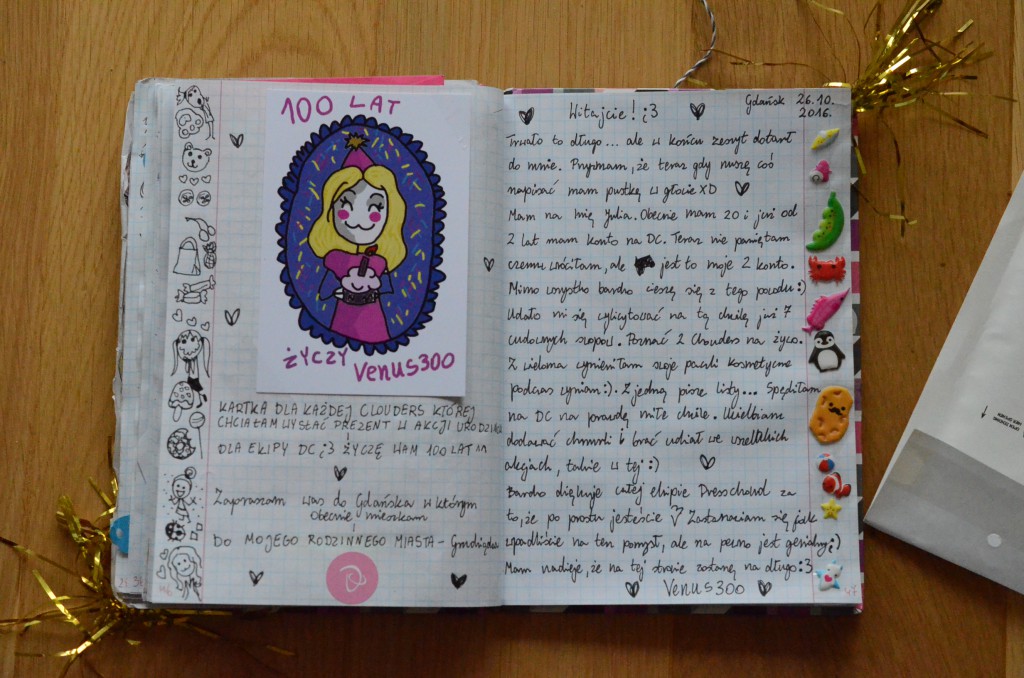 100 LAT
ŻYCZY Venus300
KARTKA DLA KAŻDEJ CLOUDERS KTÓREJ
CHCIAŁAM WYSŁAĆ PREZENT W AKCJI URODZINO
DLA EKIPY DC ¿3 ŻYCZĘ WAM 100 LAT
Zapraszam was do Gdańska w którym
obecnie mieszkam
DO MOJEGO RODZINNEGO MIASTA - Grudziądza
Gdańsk 26.10.
2016.
Witajcie! ¿3
Trwało to długo... ale w końcu zeszyt dotarł
do mnie. Przyznam, że teraz gdy muszę coś
napisać mam pustkę w głowie XD
Mam na imię Julia. Obecnie mam 20 i już od
2 lat mam konto na DC. Teraz nie pamiętam
czemu wróciłam, ale jest to moje 2 konto.
Mimo wszystko bardzo cieszę się z tego powodu :)
Udało mi się wylicytować na tą chwilę już 7
cudownych swopów. Poznać 2 Clouders na żywo.
Z wieloma wymieniłam swoje paczki kosmetyczne
podczas wymian :). Z jedną piszę listy... Spędziłam
na DC na prawdę miłe chwile. Uwielbiam
dodawać chmurki i brać udział we wszelkich
akcjach, takie w tej :)
Bardzo dziękuję całej ekipie Dresscloud za
to, że po prostu jesteście Zastanawiam się jak
wpadliście na ten pomysł, ale na pewno jest genialny ;)
Mam nadzieję, że na tej stronie zostanę na długo :3
Venus300
47